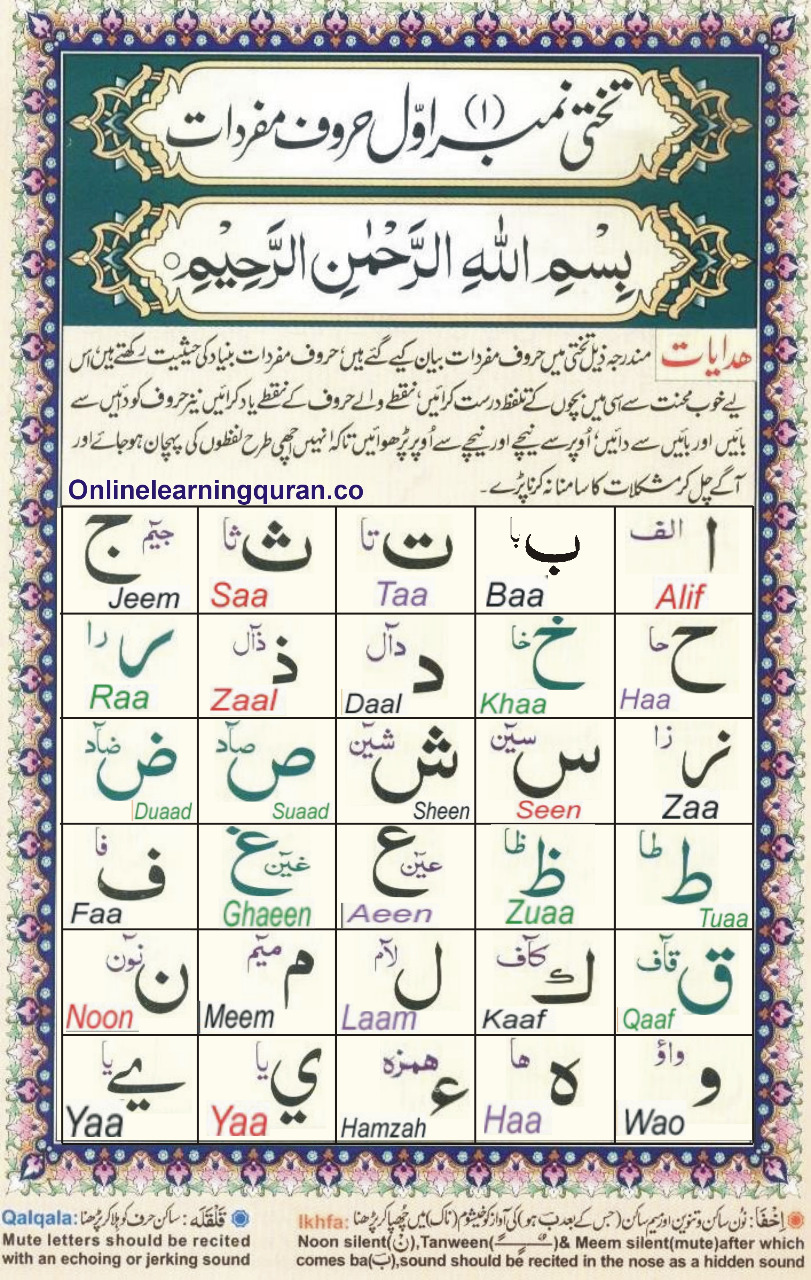 تختی نمبر (۱) اوّل حروف مفردات
بِسْمِ اللهِ الرَّحْمٰنِ الرَّحِيْمِ
هدایات مندرجہ ذیل تختی میں حروف مفردات بیان کیے گئے ہیں، حروف مفردات بنیاد کی حیثیت رکھتے ہیں، اس
لیے خوب محنت سے اسی میں بچوں کے تلفظ درست کرائیں، نقطے والے حروف کے نقطے یاد کرائیں نیز حروف کو دائیں سے
بائیں اور بائیں سے دائیں، اُوپر سے نیچے اور نیچے سے اُوپر پڑھوائیں تاکہ انہیں اچھی طرح لفظوں کی پہچان ہو جائے اور
آگے چل کر مشکلات کا سامنا نہ کرنا پڑے۔
Onlinelearningquran.co
ا الف Alif
ب با Baa
ت تا Taa
ث ثا Saa
ج جيٓم Jeem
ح حا Haa
خ خا Khaa
د دآل Daal
ذ ذآل Zaal
ر را Raa
ز زا Zaa
س سيٓن Seen
ش شيٓن Sheen
ص صآد Suaad
ض ضآد Duaad
ط طا Tuaa
ظ ظا Zuaa
ع عيٓن Aeen
غ غيٓن Ghaeen
ف فا Faa
ق قآف Qaaf
ك كآف Kaaf
ل لآم Laam
م ميٓم Meem
ن نوٓن Noon
و وآؤ Wao
ہ ها Haa
ء همزه Hamzah
ي يا Yaa
ے يا Yaa
اِخْفَا: نون ساکن و تنوین اور میم ساکن (جس کے بعد بَ ہو) کی آواز کو خیشوم (ناک) میں چُھپا کر پڑھنا Ikhfa:
Noon silent(نْ),Tanween(ـًـٍـٌ)& Meem silent(mute)after which
comes ba(بَ),sound should be recited in the nose as a hidden sound
قَلْقَلَه: ساکن حرف کو ہلا کر پڑھنا Qalqala:
Mute letters should be recited
with an echoing or jerking sound